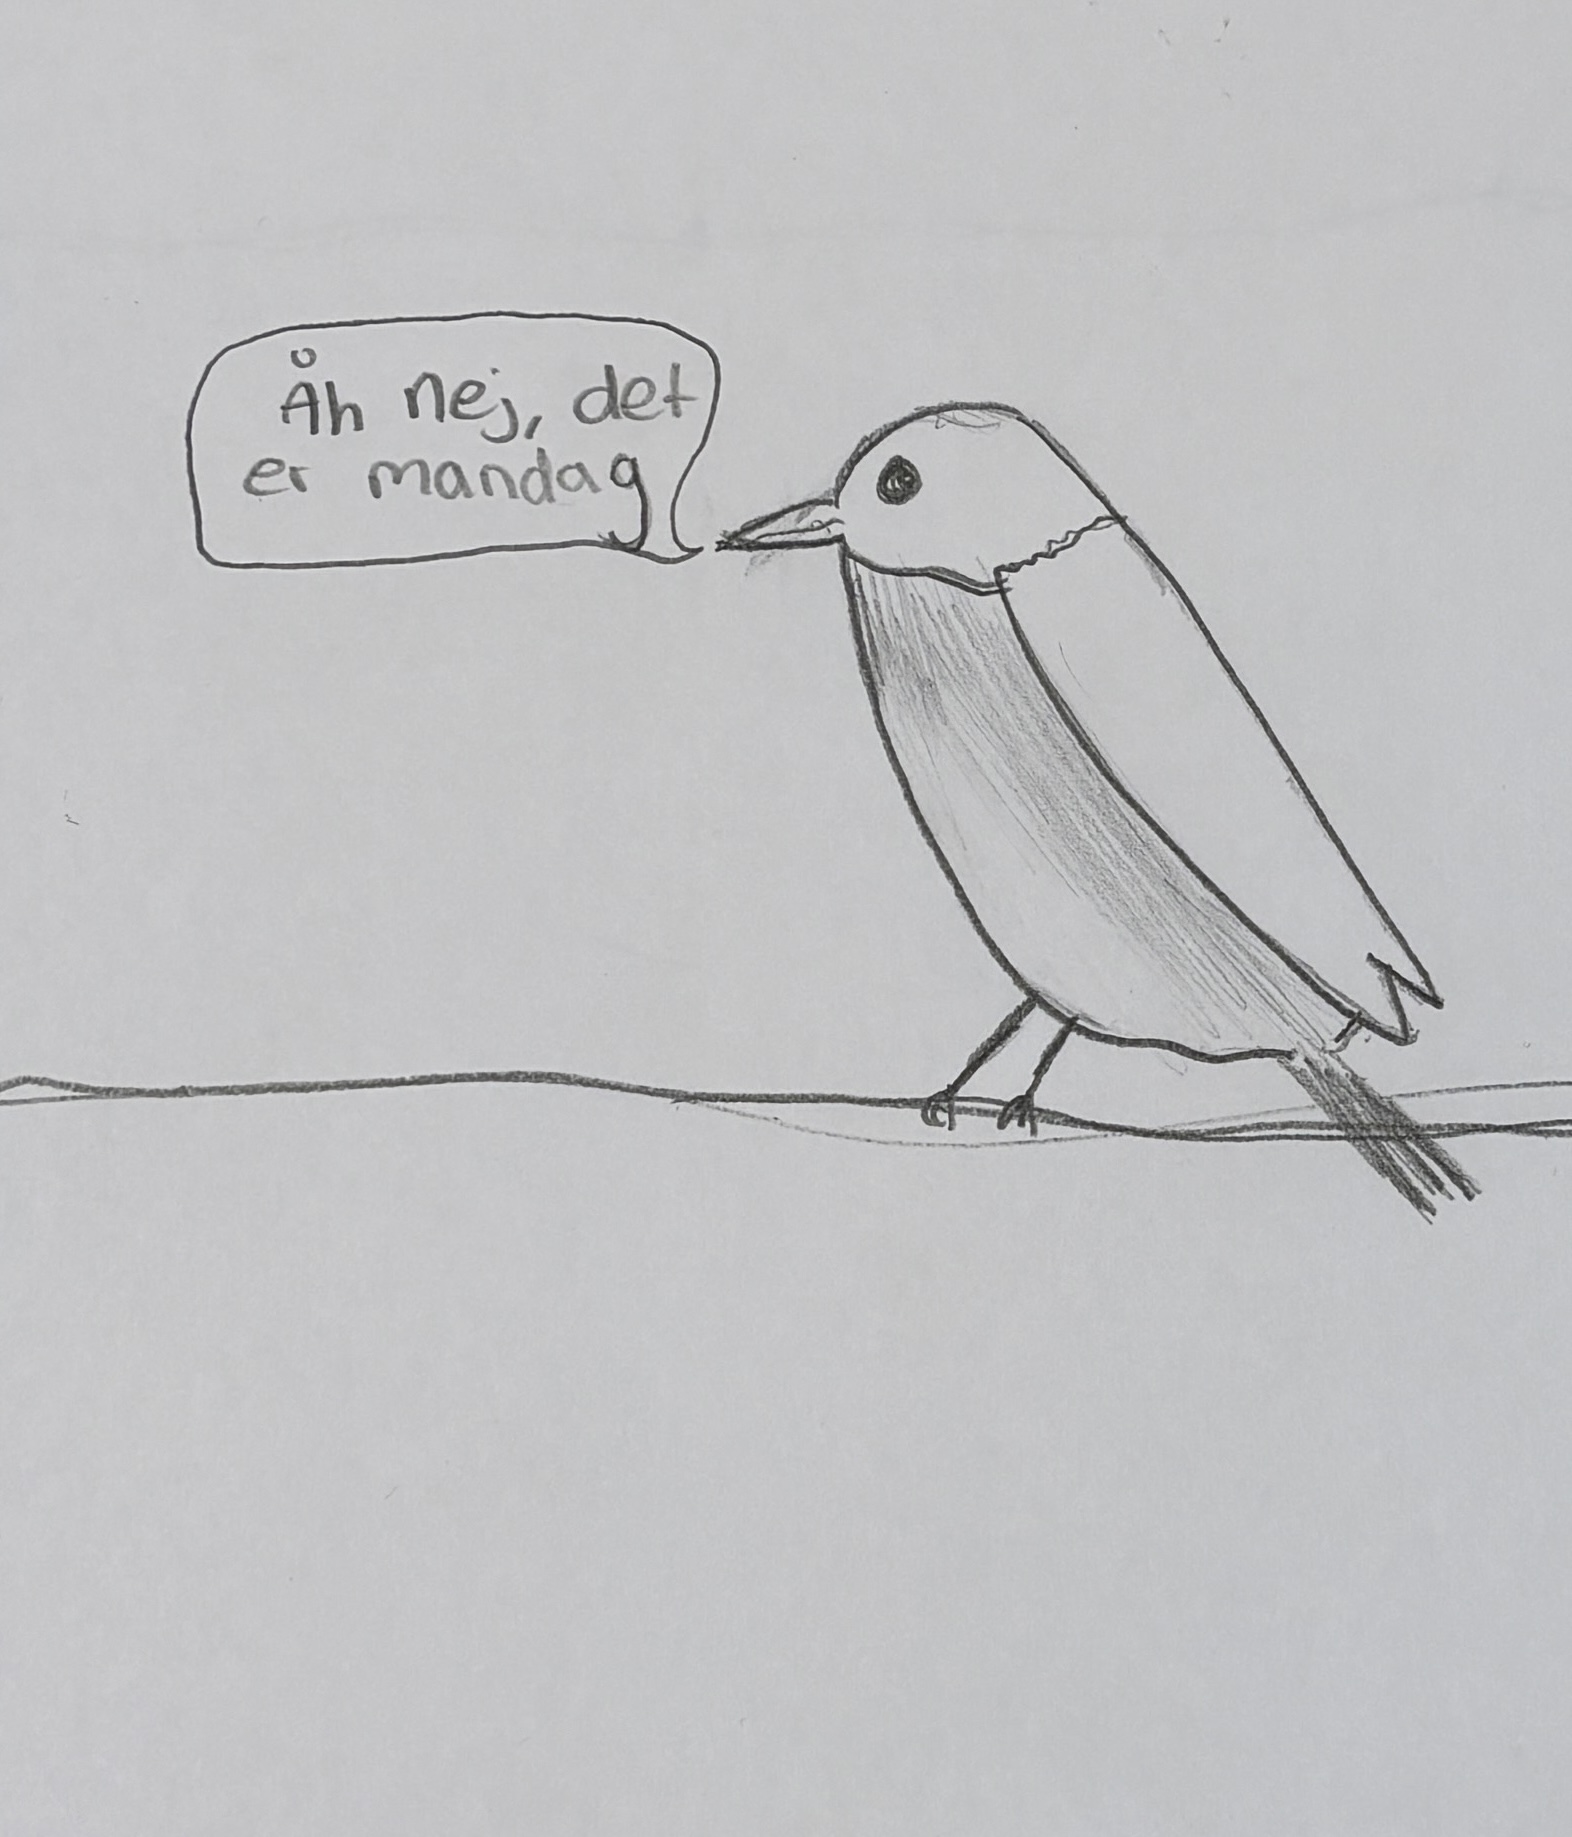 Åh nej, det
er mandag